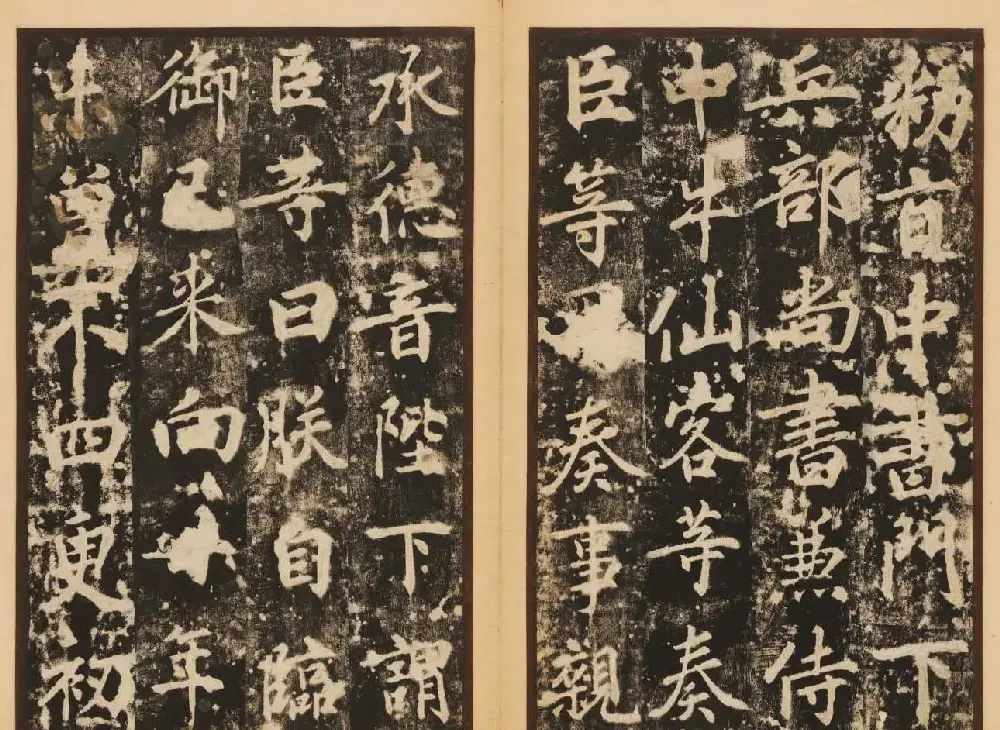 勑直中書門下
兵部尚書兼侍
中牛仙客等奏
臣等奏事親
承德音陛下謂
臣等曰朕自臨
御已來向年
未曾不四更初